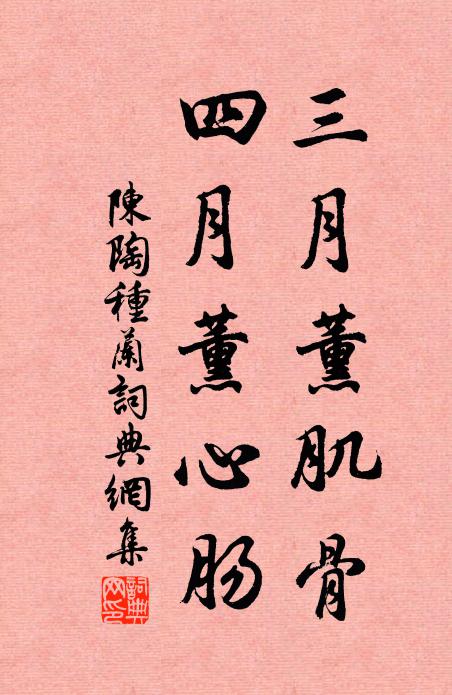 三月薰肌骨
四月薰心肠
陳陶種蘭詞典網集
詞典网印